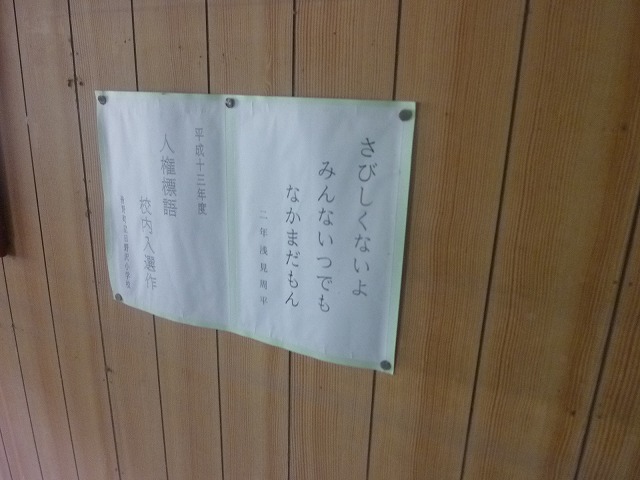 さびしくないよ
みんないつでも
なかまだもん
二年浅見周平
平成十三年度
人権標語
校内入選作
皆野町立日野沢小学校